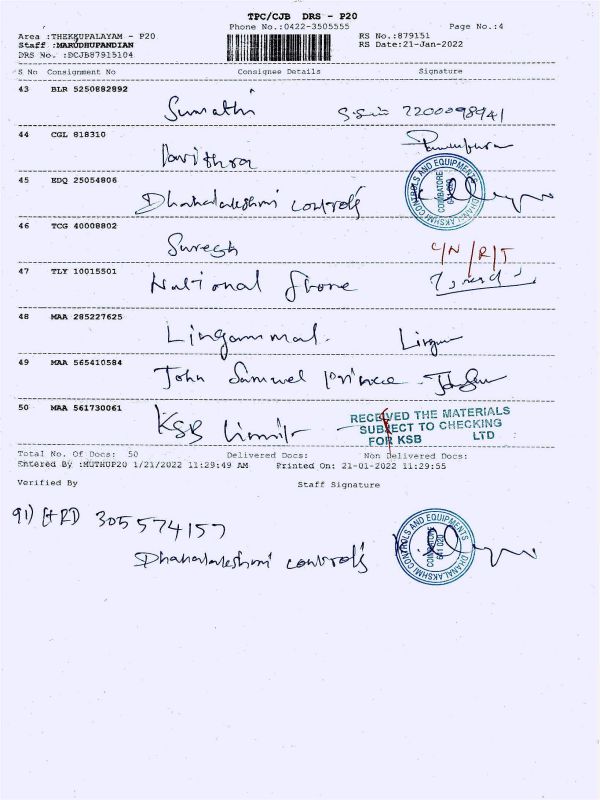 TPC/CJB DRS - P20
Phone No.:0422-3505555
Page No.:4
Area :THEKKUPALAYAM - P20
RS No.:879151
Staff :MARUDHUPANDIAN
RS Date:21-Jan-2022
DRS No. :DCJB87915104
S No Consignment No Consignee Details Signature
43 BLR 5250882892
Sumathi
44 CGL 818310
Pavithra
45 EDQ 25054806
Dhanalakshmi controls
CONTROLS AND EQUIPMENTS
DHANALAKSHMI
COIMBATORE
46 TCG 40008802
Suresh C/N/R/T
47 TLY 10015501
National Stone
48 MAA 285227625
Lingammal.
49 MAA 565410584
John Samuel prince
50 MAA 561730061
KSB Limit
RECEIVED THE MATERIALS
SUBJECT TO CHECKING
FOR KSB LTD
Total No. Of Docs: 50 Delivered Docs: Non Delivered Docs:
Entered By :MUTHUP20 1/21/2022 11:29:49 AM Printed On: 21-01-2022 11:29:55
Verified By Staff Signature
91) HRD 305574157
Dhanalakshmi controls
CONTROLS AND EQUIPMENTS
DHANALAKSHMI
COIMBATORE
641 020